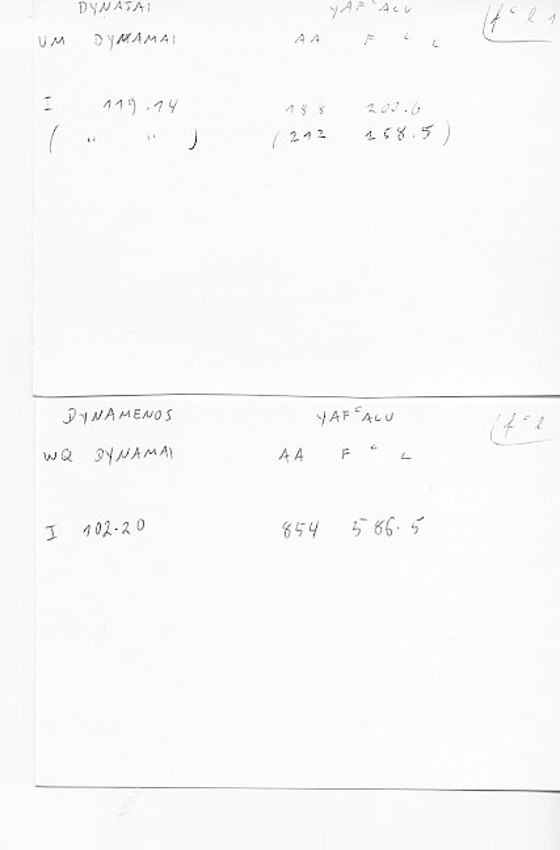 DYNATAI YAFᶜALU (fᶜl 1
UM DYNAMAI AA F ᶜ L
I 119.14 188 200.6
( " " ) (212 158.5)
DYNAMENOS YAFᶜALU (fᶜl
WQ DYNAMAI AA F ᶜ L
I 102.20 854 586.5